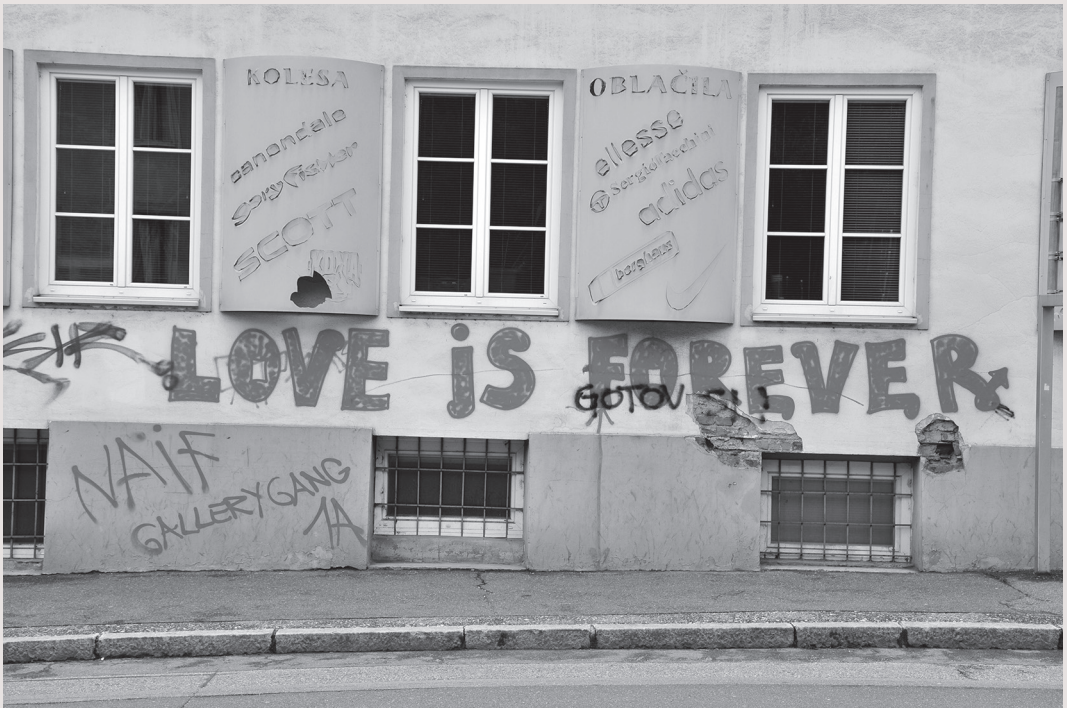 KOLESA
cannondale
Gary Fisher
SCOTT
KONA
OBLAČILA
ellesse
sergio tacchini
adidas
berghaus
LOVE iS FOREVER
GOTOV SI!
NAiF
GALLERYGANG
1A